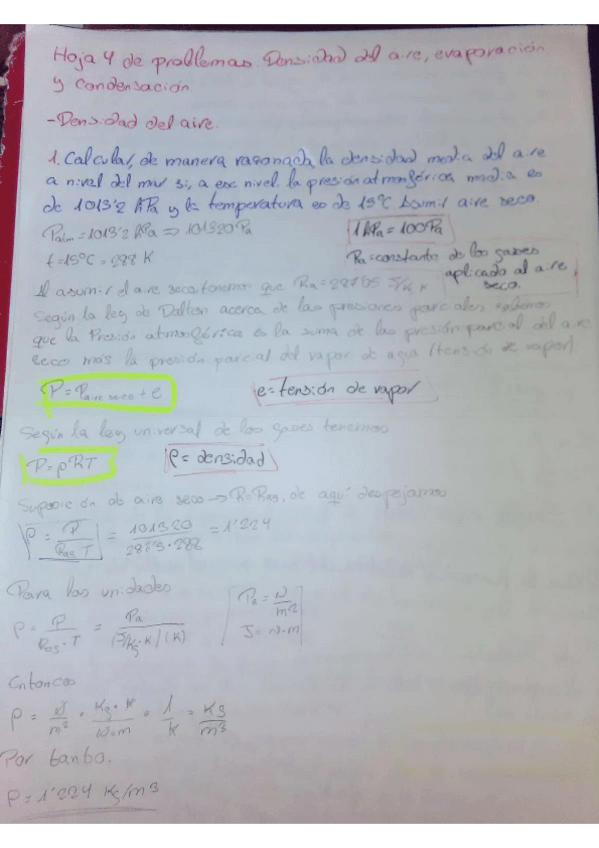 Hoja 4 de problemas. Densidad del aire, evaporación
y condensación
-Densidad del aire.
1. Calcular, de manera razonada la densidad media del aire
a nivel del mar si, a ese nivel la presión atmosférica media es
de 1013'2 hPa y la temperatura es de 15ºC. Asumir aire seco.
Patm = 1013'2 hPa => 101320 Pa
1 hPa = 100 Pa
t = 15ºC = 288 K
Ra = constante de los gases
aplicado al aire
seco.
Al asumir el aire seco tenemos que Ra =
Según la ley de Dalton acerca de las presiones parciales sabemos
que la Presión atmosférica es la suma de las presión parcial del aire
seco más la presión parcial del vapor de agua (tensión de vapor)
P = P aire seco + e
e = tensión de vapor
Según la ley universal de los gases tenemos
P = ρRT
ρ = densidad
Suposición de aire seco -> R = Ras, de aquí despejamos
ρ = P / Ras T = 101320 / 287'5 · 288 = 1'224
Para las unidades
ρ = P / Ras · T = Pa / (J/Kg·K)(K)
Pa = N / m²
J = N·m
Entonces
ρ = N / m² · Kg·K / N·m · 1 / K = Kg / m³
Por tanto.
ρ = 1'224 Kg/m³